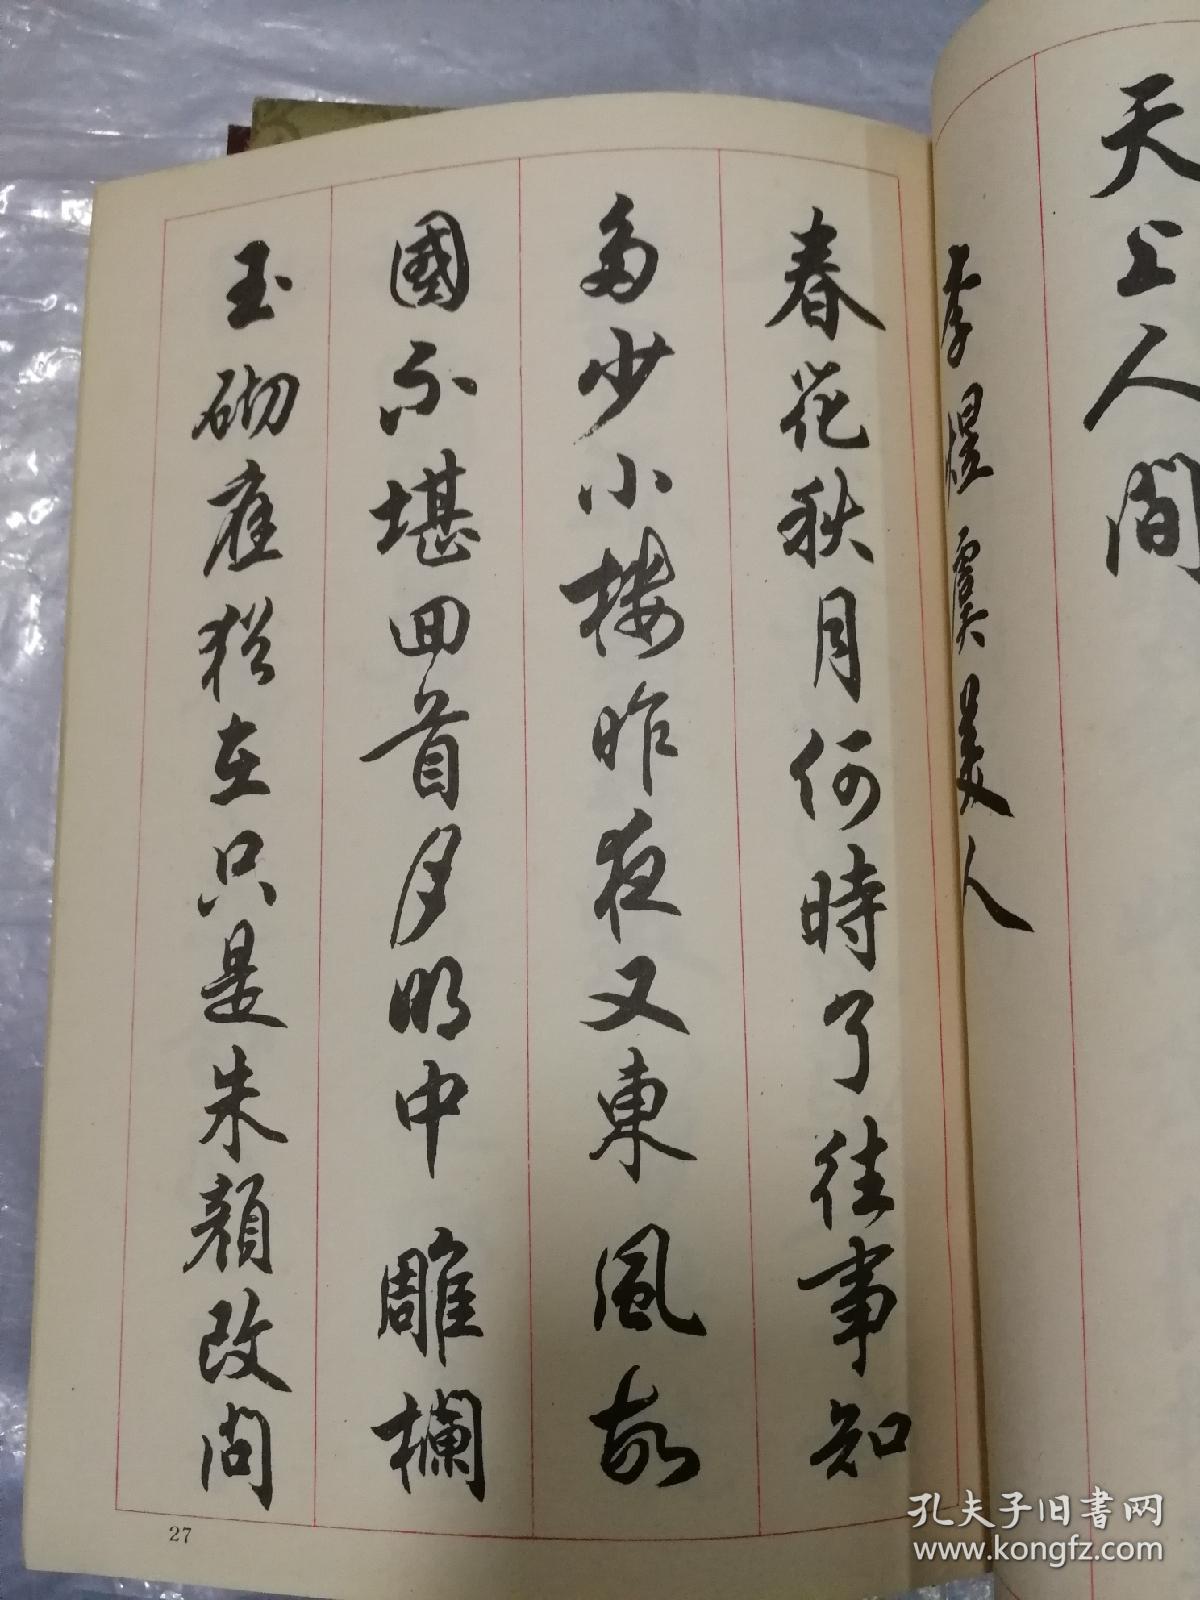 天上人間
李煜虞美人
春花秋月何時了往事知
多少小樓昨夜又東風故
國不堪回首月明中雕欄
玉砌應猶在只是朱顏改問
27
孔夫子旧书网
www.kongfz.com